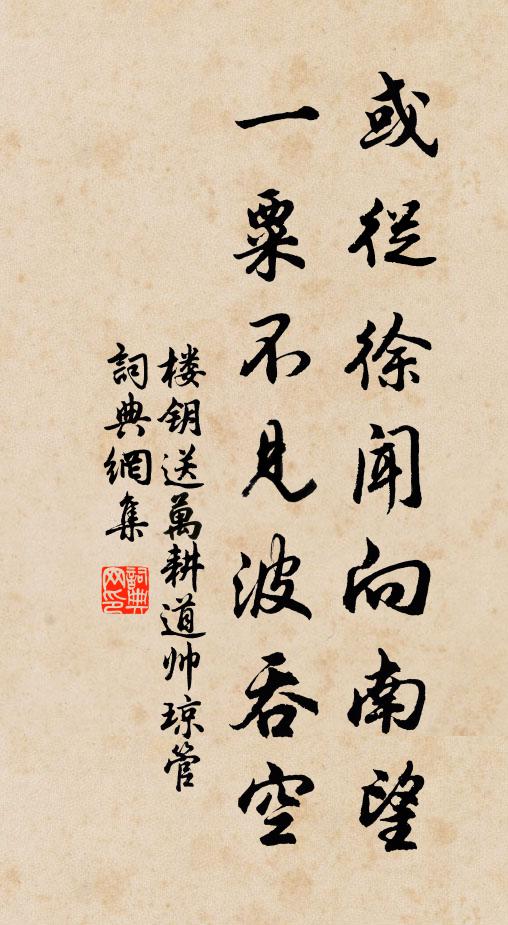 或從徐聞向南望
一粟不見波吞空
楼钥送萬耕道帅琼管
詞典網集
詞典
网印